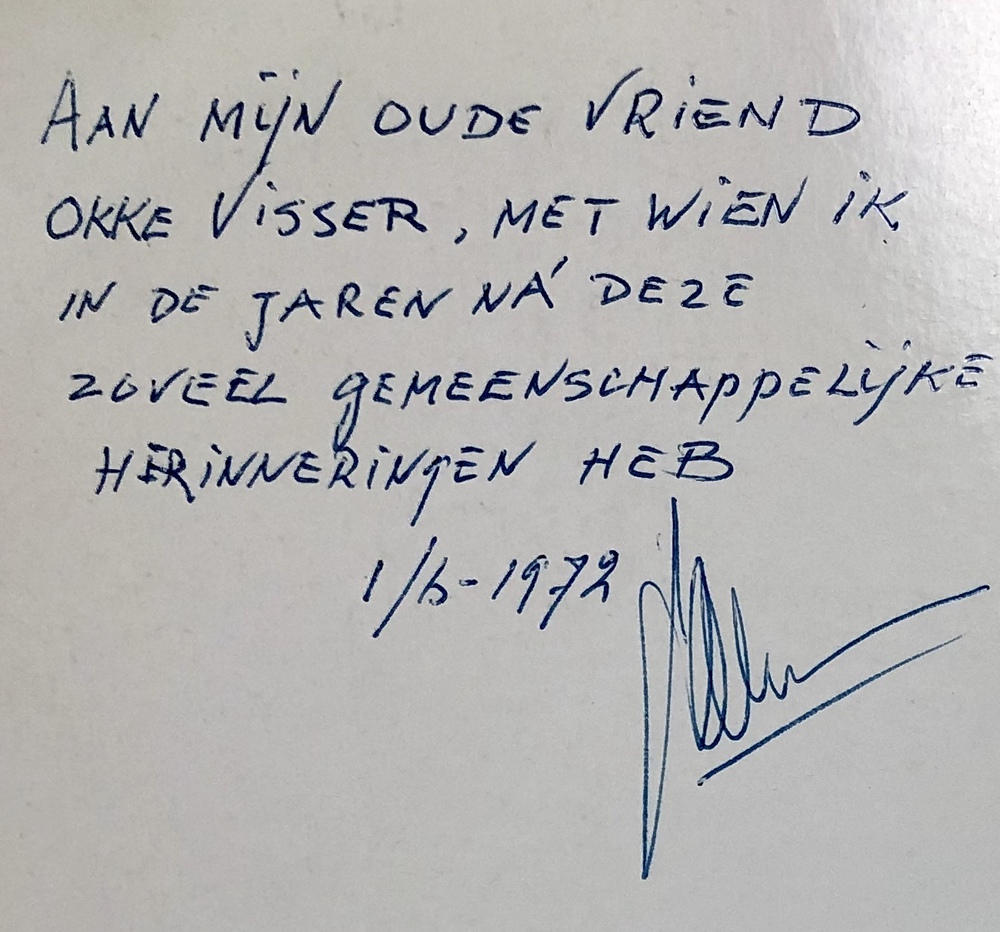 AAN MIJN OUDE VRIEND
OKKE VISSER, MET WIEN IK
IN DE JAREN NÁ DEZE
ZOVEEL GEMEENSCHAPPELIJKE
HERINNERINGEN HEB
1/6-1972